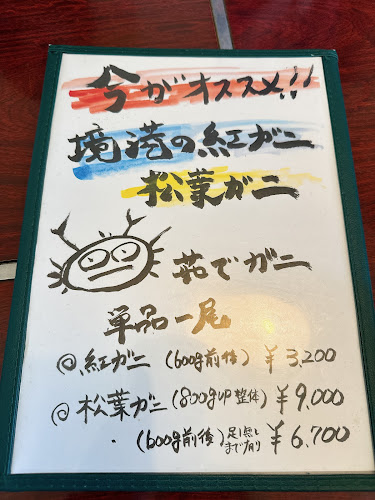 今がオススメ!!
境港の紅ガニ
松葉ガニ
茹でガニ
単品一尾
◎紅ガニ(600g前後)¥3,200
◎松葉ガニ(800gup整体)¥9,000
・(600g前後)足1無しまで有り ¥6,700